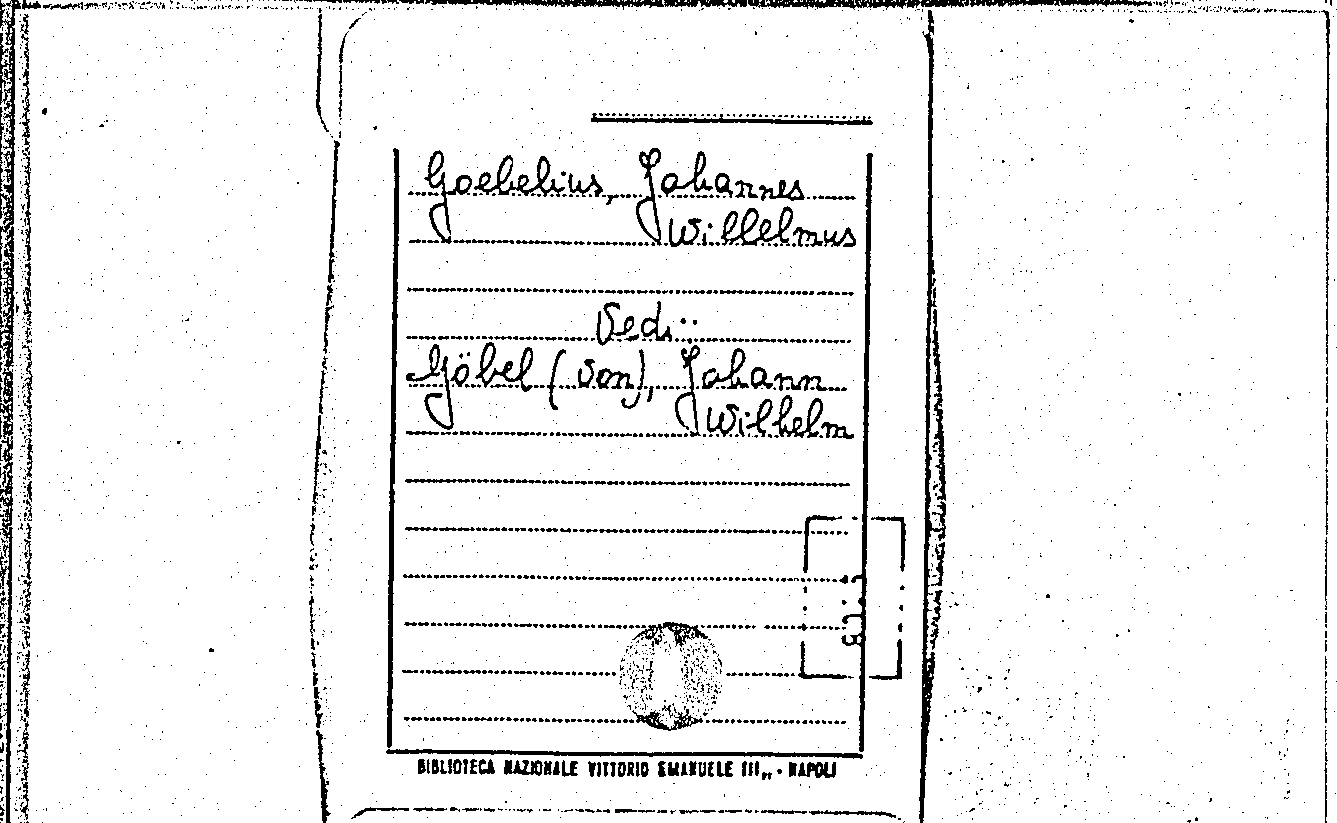 Goebelius, Johannes
Willelmus
Vedi:
Göbel (von), Johann
Wilhelm
BIBLIOTECA NAZIONALE VITTORIO EMANUELE III„ - NAPOLI